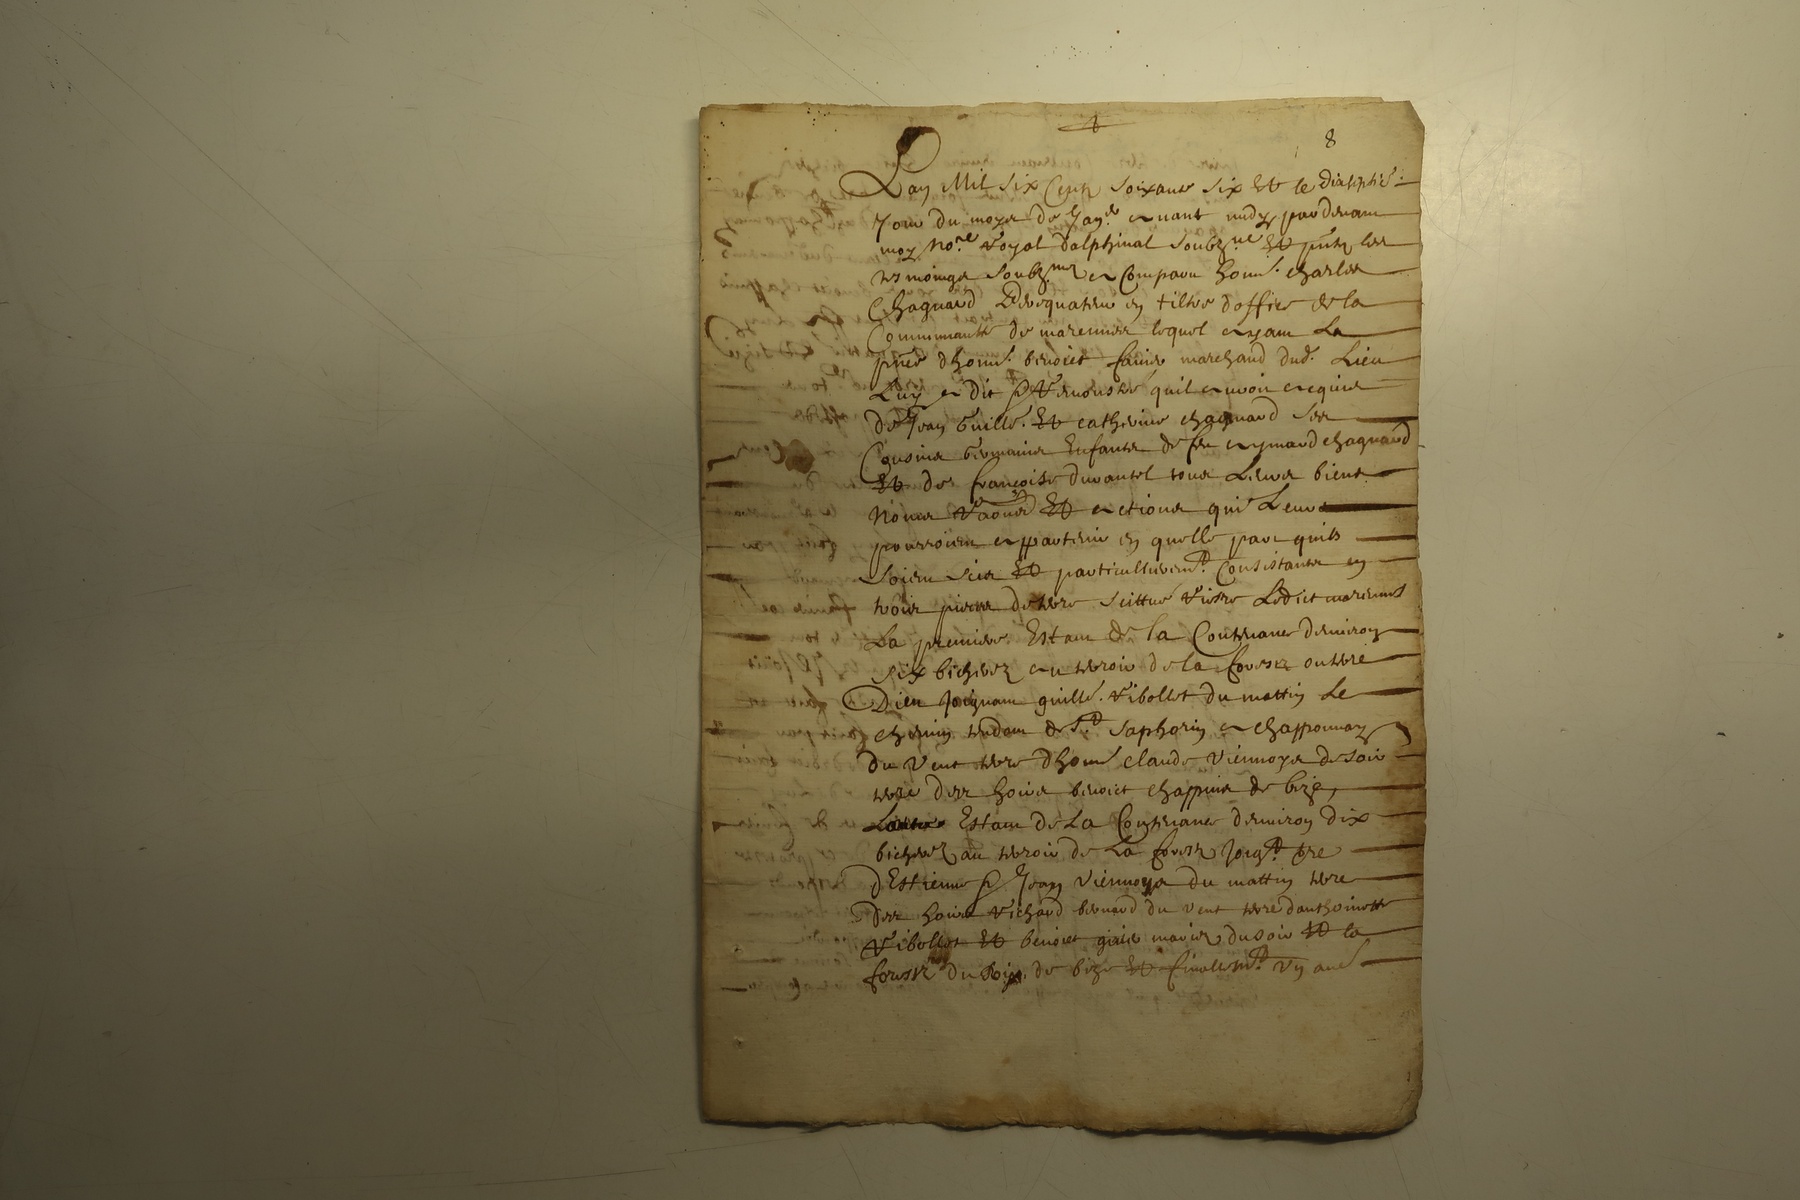 8
Lan Mil six Centz soixante six Et le dixseptie.
Jour du moys de Janer. avant midy pardevant
moy Nore. Royal dalphinal soubzne. Et pntz les
tesmoings soubznez a Comparu honn. charles
Chagnard Perequateur en tiltre doffice de la
Communaute de marennes lequel ayant La
pnce dhonn. benoict faure marchand dud. Lieu
Luy a dit & Remonstré quil avoit acquis
de Jean Guille. Et catherine chagnard ses
Cousins Germains Enfants de feu aymard chagnard
Et de françoise durantel tous Leurs biens
Noms Raons Et actions qui Leur
pourroient appartenir en quelle part quils
soient scis Et particullierent. Consistants en
trois pieces de terre scittué Riere Ledict marennes
La premiere Estant de la Contenance denviron
six bicherez au terroir de la forest outere
Dieu Joignant guille. Ribollet du mattin Le
chemin tendant de St. Saphorin a chapponnay
du vent terre dhonn claude viennoys de soir
terre des hoirs benoict chappuis de bize,
Lautre Estant de La Contenance denviron dix
bicherez au terroir de La forest Joigt. tre
dEstienne & Jean viennoys du mattin terre
des hoirs Richard bernard du vent terre danthoinette
Ribollet Et benoict mariez du soir Et la
forest du de bize Et finalemt. Vn aue